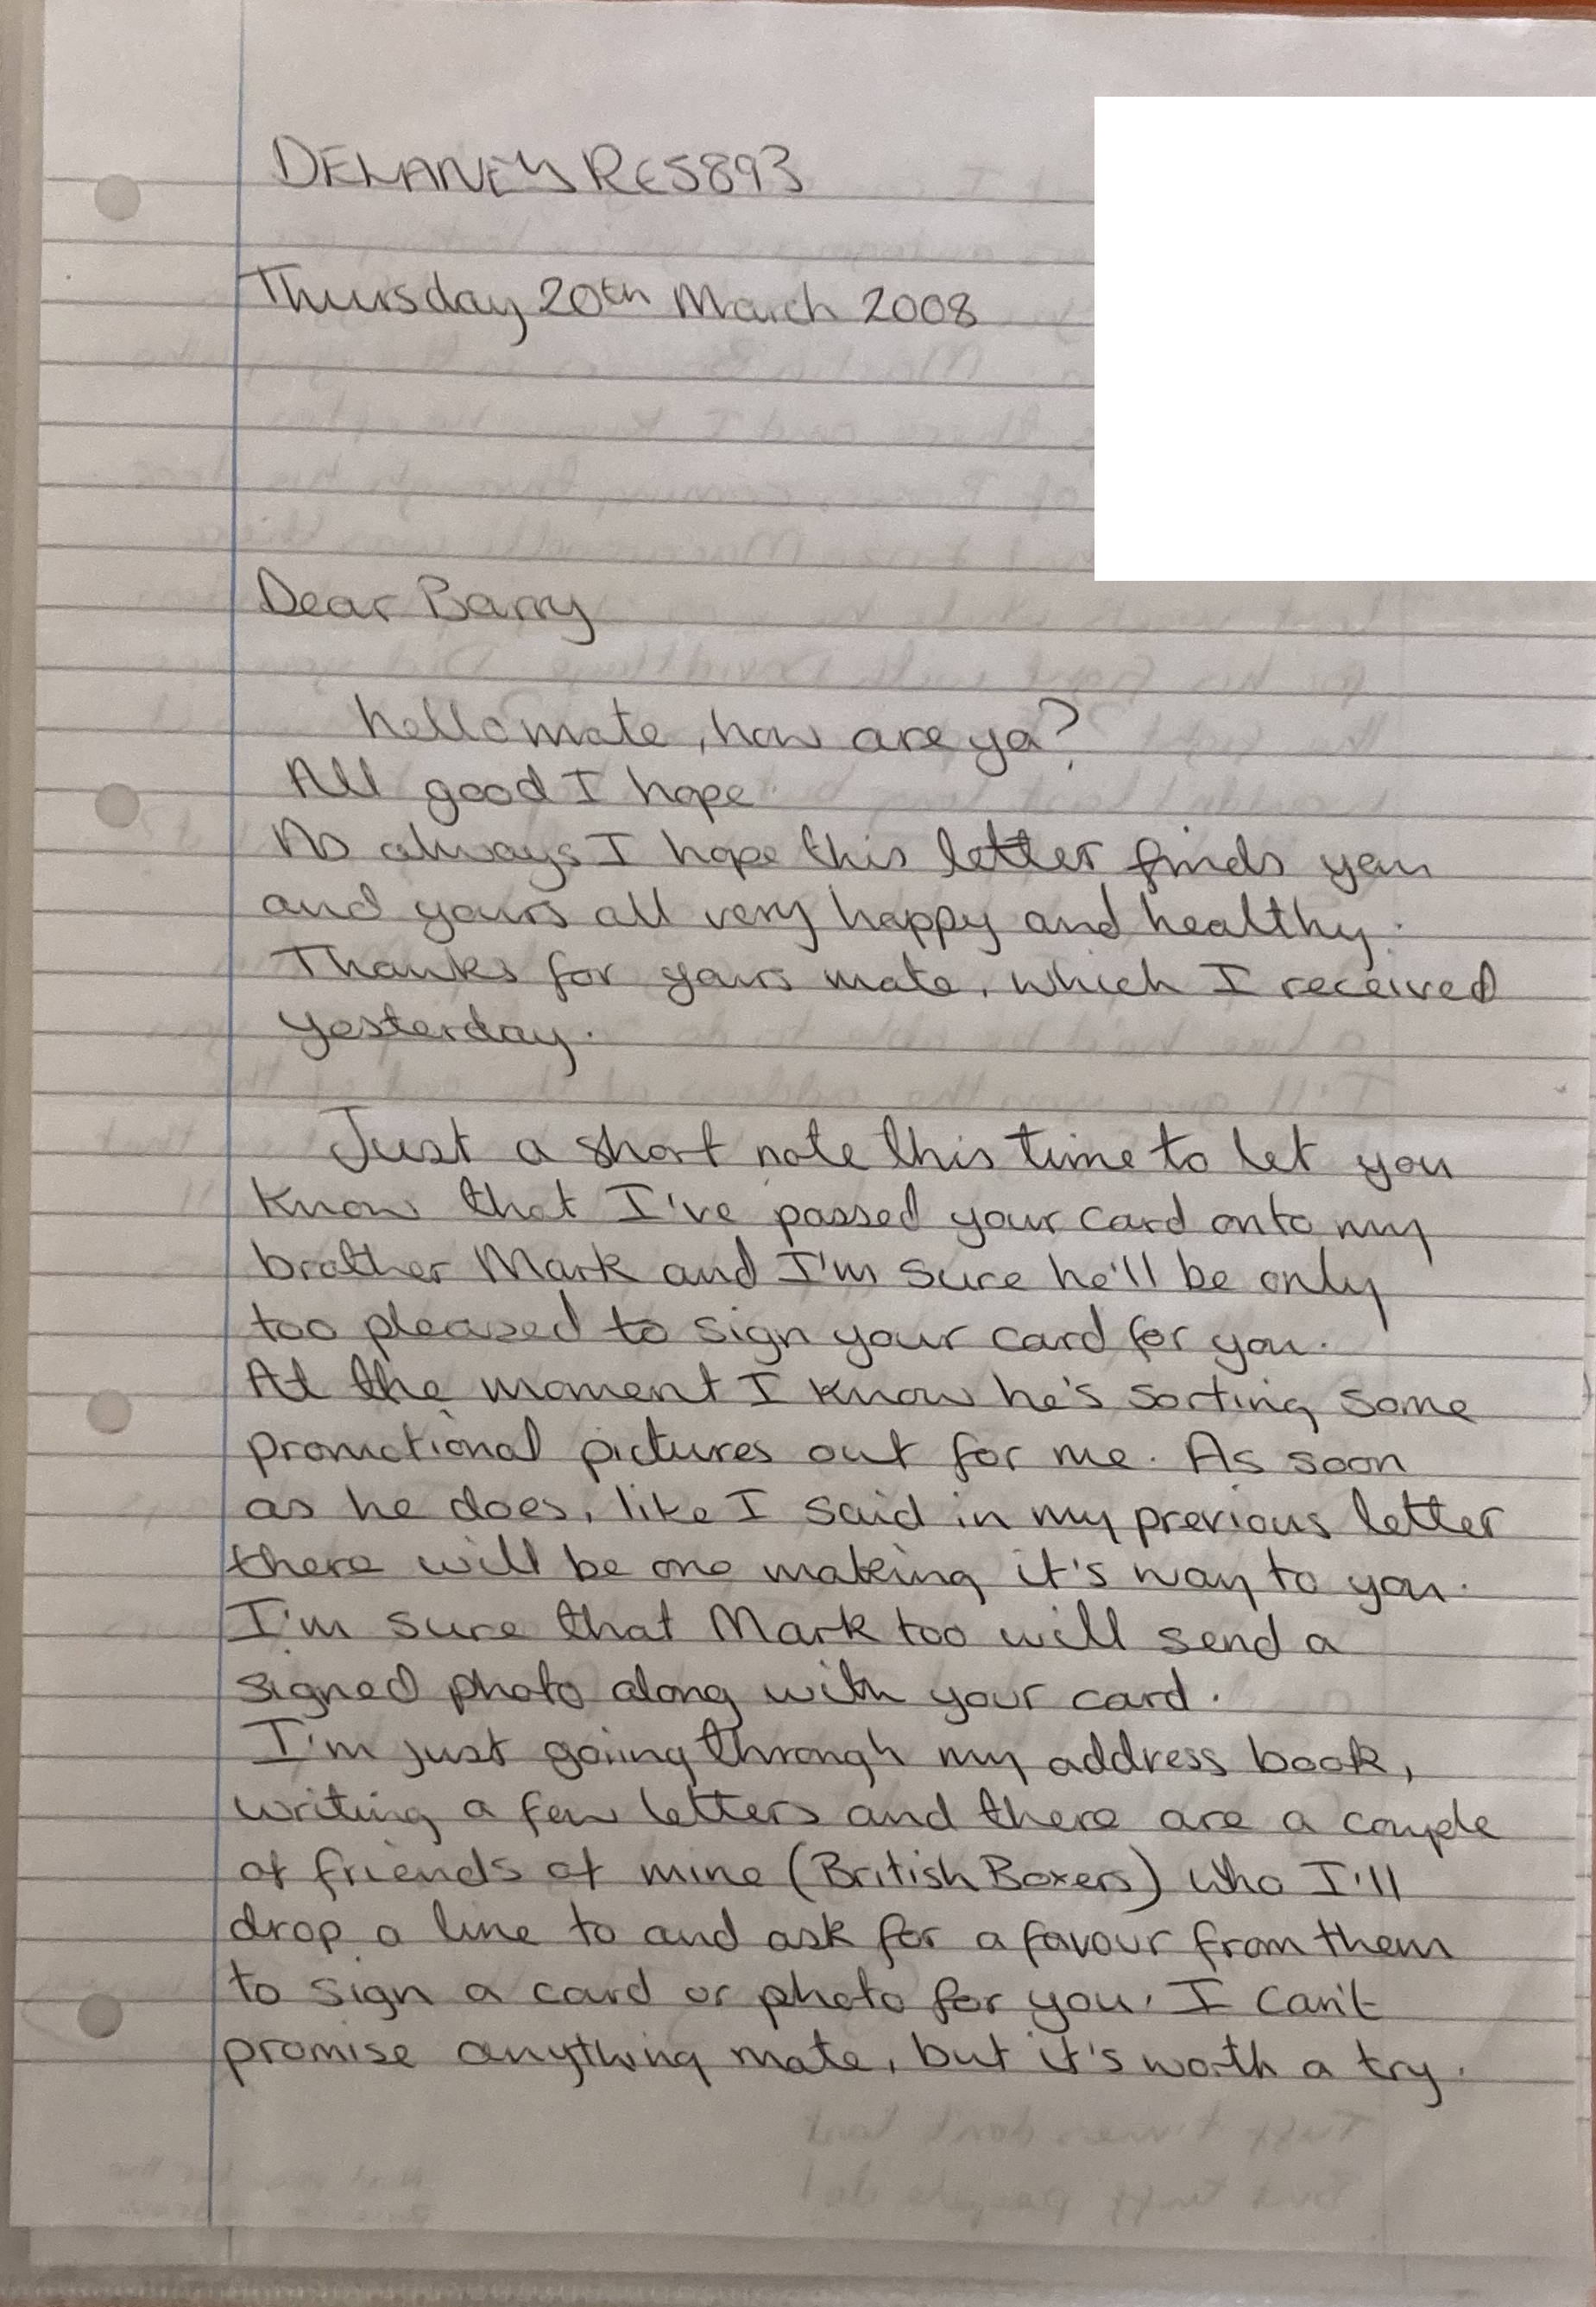 DELANEY RC5893
Thursday 20th March 2008
Dear Barry
hello mate, how are ya?
All good I hope.
As always I hope this letter finds you
and yours all very happy and healthy.
Thanks for yours mate, which I received
yesterday.
Just a short note this time to let you
know that I've passed your card onto my
brother Mark and I'm sure he'll be only
too pleased to sign your card for you.
At the moment I know he's sorting some
promotional pictures out for me. As soon
as he does, like I said in my previous letter
there will be one making it's way to you.
I'm sure that Mark too will send a
signed photo along with your card.
I'm just going through my address book,
writing a few letters and there are a couple
of friends of mine (British Boxers) who I'll
drop a line to and ask for a favour from them
to sign a card or photo for you. I can't
promise anything mate, but it's worth a try.